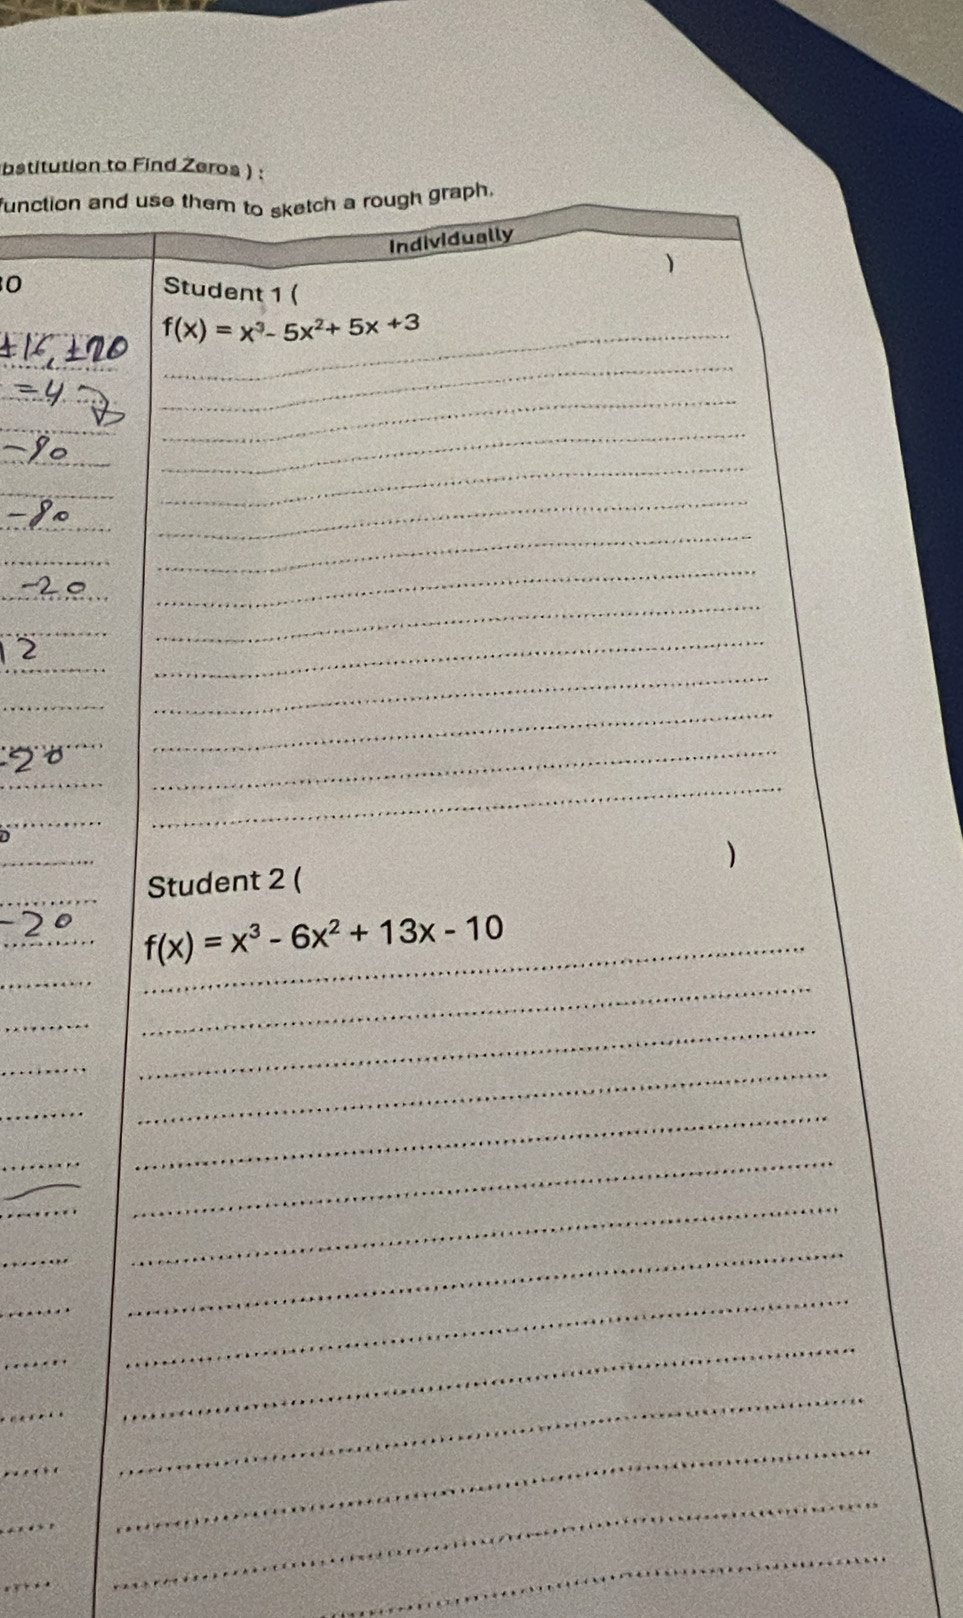 bstitution to Find Zeros ) :
function and use them to sketch a rough graph.
Individually
Student 1 ( )
f(x) = x³- 5x²+ 5x +3
±16, ±20
= 4
-80
-80
-20
12
-20
-20
Student 2 ( )
f(x) = x³ - 6x² + 13x - 10